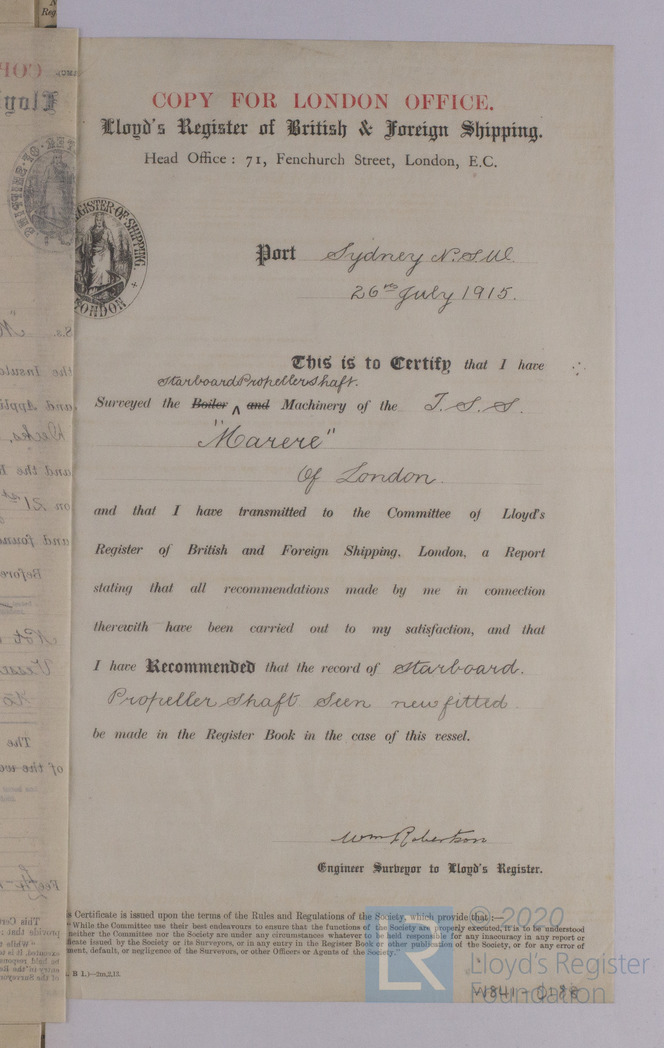 COPY FOR LONDON OFFICE.
Lloyd's Register of British & Foreign Shipping.
Head Office: 71, Fenchurch Street, London, E.C.
REGISTER OF SHIPPING
LONDON
Port Sydney N.S.W.
26th July 1915.
This is to Certify that I have
Starboard Propeller Shaft.
Surveyed the Boiler and Machinery of the T.S.S.
"Marere"
Of London.
and that I have transmitted to the Committee of Lloyd's
Register of British and Foreign Shipping, London, a Report
stating that all recommendations made by me in connection
therewith have been carried out to my satisfaction, and that
I have Recommended that the record of starboard.
Propeller Shaft Seen new fitted.
be made in the Register Book in the case of this vessel.
Wm Robertson
Engineer Surveyor to Lloyd's Register.
Certificate is issued upon the terms of the Rules and Regulations of the Society, which provide that:—
"While the Committee use their best endeavours to ensure that the functions of the Society are properly executed, it is to be understood
neither the Committee nor the Society are under any circumstances whatever to be held responsible for any inaccuracy in any report or
ficate issued by the Society or its Surveyors, or in any entry in the Register Book or other publication of the Society, or for any error of
ment, default, or negligence of the Surveyors, or other Officers or Agents of the Society."
B 1.)—2m,2,13.
LR
© 2020
Lloyd's Register
Foundation